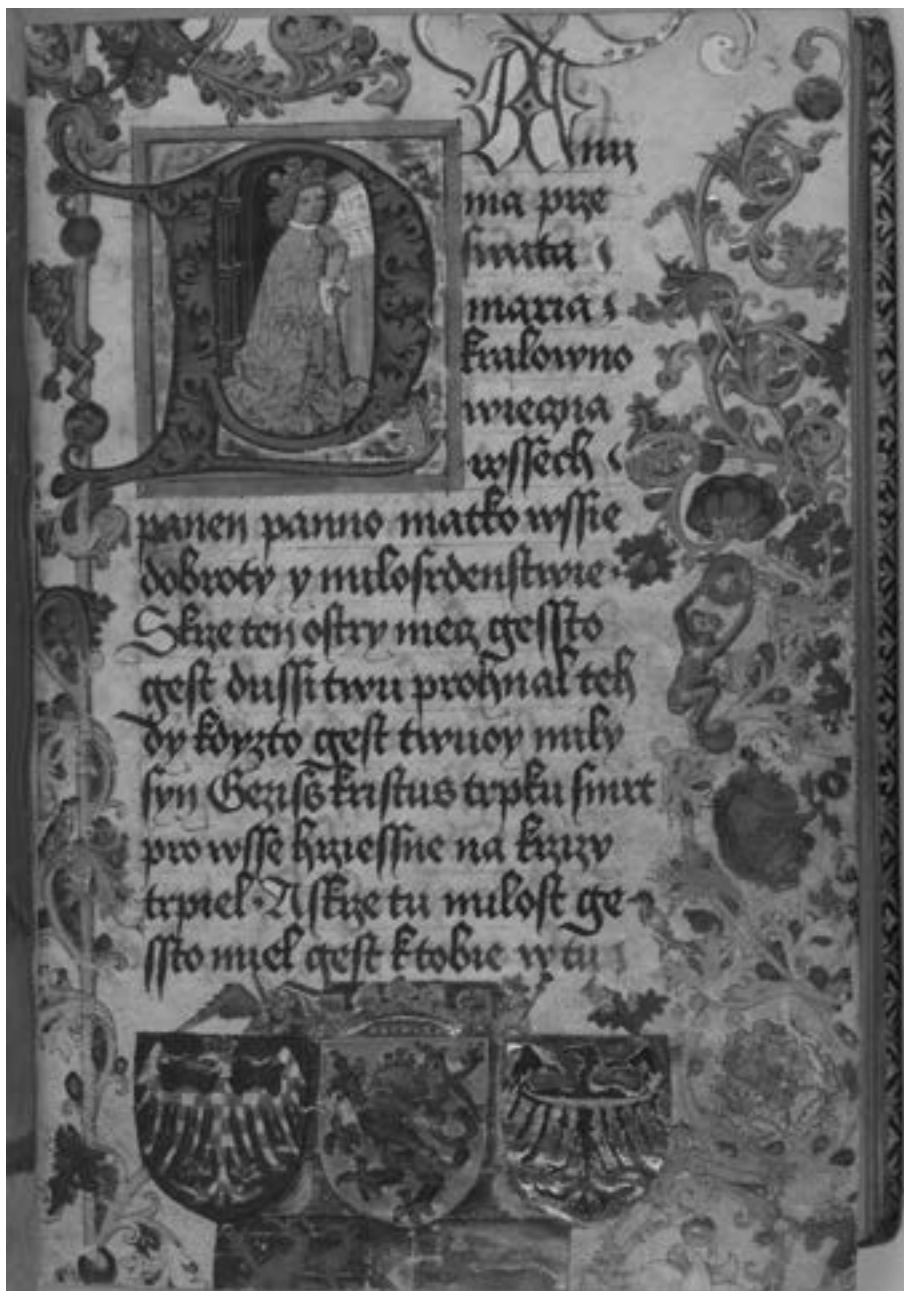 D Any
ma prze
swata
maria
kralowno
wieczna
wssech
panen panno matko wssie
dobroty y milosrdenstwie
Skrze ten ostry mecz gessto
gest dussi twu prohnal teh
dy kdyzto gest twuoy mily
syn Geziss kristus trpku smrt
pro wsse hrziessne na krzizy
trpiel · A skrze tu milost ge
ssto miel gest k tobie w tu